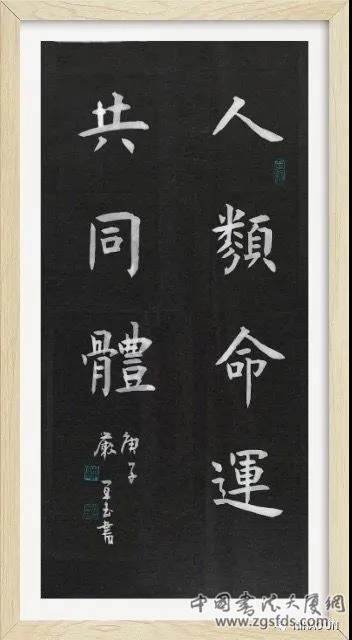 人類命運
共同體
庚子
嚴玉書
中國書法大厦網
www.zgsfds.com